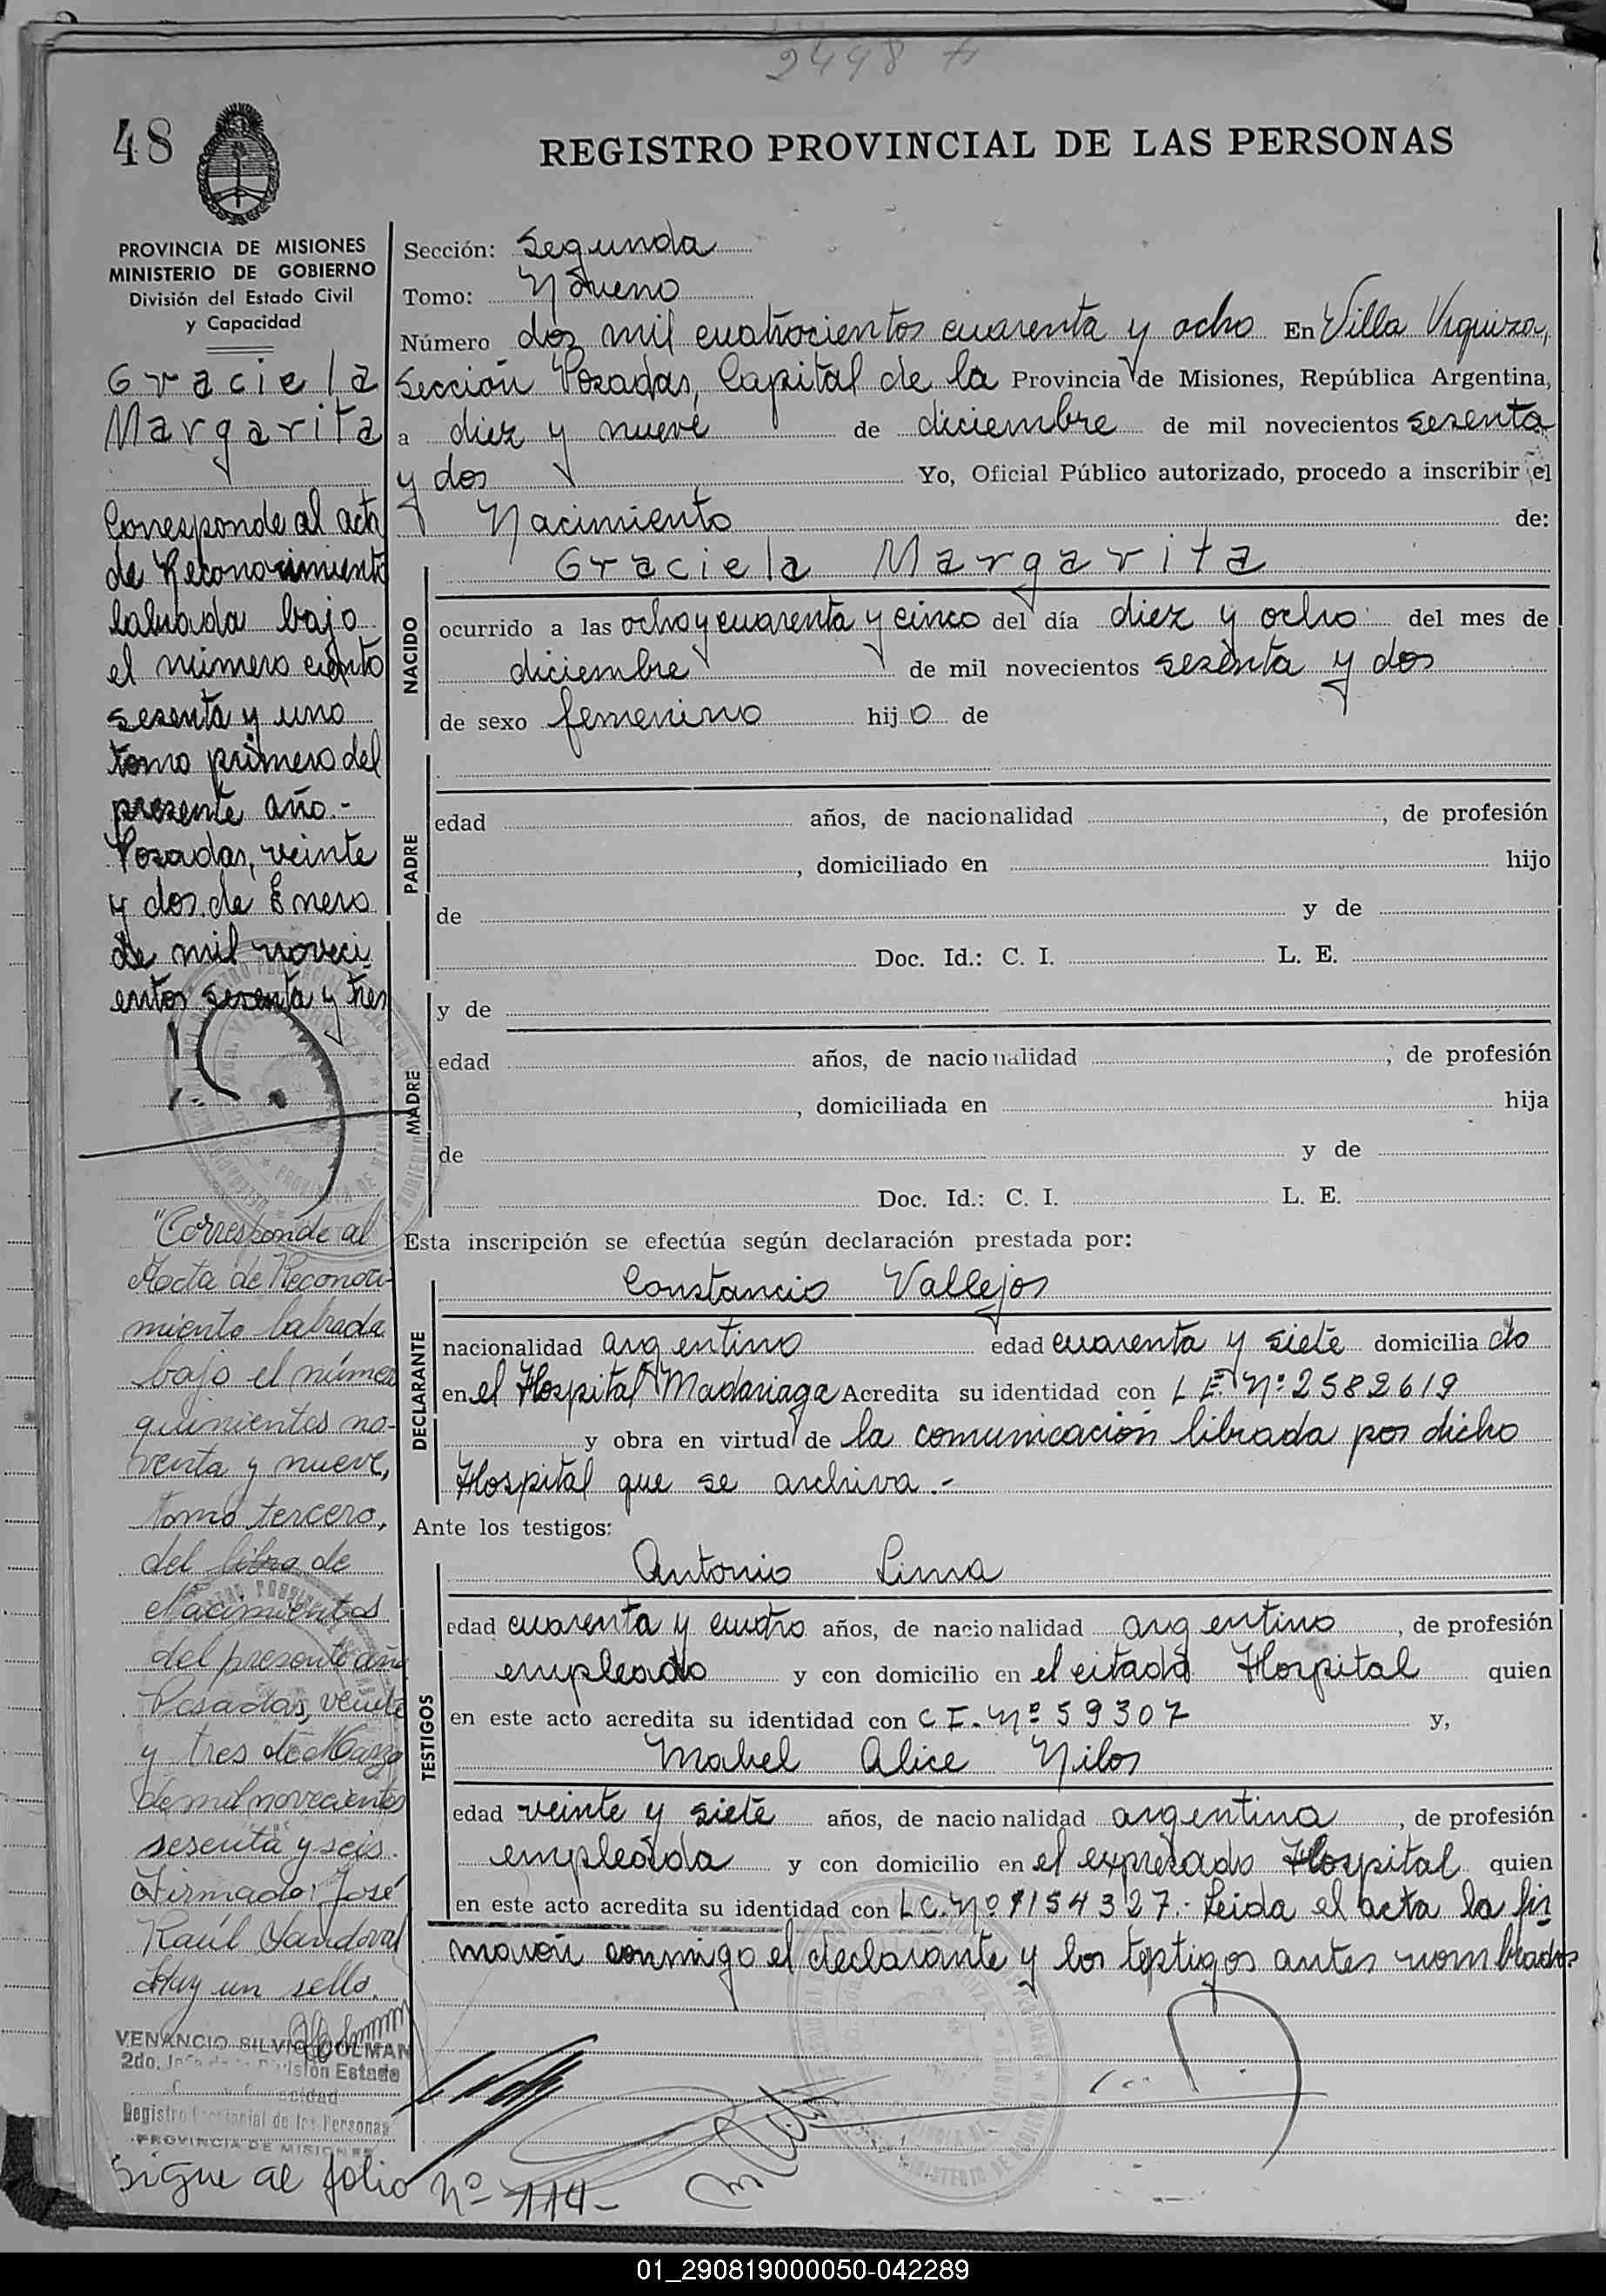 2448
48
REGISTRO PROVINCIAL DE LAS PERSONAS
PROVINCIA DE MISIONES
MINISTERIO DE GOBIERNO
División del Estado Civil
y Capacidad
Graciela
Margarita
Corresponde al acta
de Reconocimiento
labrada bajo
el número ciento
sesenta y uno
tomo primero del
presente año.-
Posadas, veinte
y dos de Enero
de mil noveci
entos sesenta y tres
"Corresponde al
Acta de Reconoci-
miento labrada
bajo el número
quinientos no-
venta y nueve,
tomo tercero,
del libro de
Nacimientos
del presente año
Posadas, veinte
y tres de Marzo
de mil novecientos
sesenta y seis.
Firmado: José
Raúl Sandoval
Hay un sello.
VENANCIO SILVIO DOLMAN
2do. Jefe de la División Estado
Registro Provincial de las Personas
PROVINCIA DE MISIONES
Sigue al folio Nº 114-
Sección: Segunda
Tomo: Noveno
Número dos mil cuatrocientos cuarenta y ocho En Villa Urquiza,
Sección Posadas, Capital de la Provincia de Misiones, República Argentina,
a diez y nueve de diciembre de mil novecientos sesenta
y dos Yo, Oficial Público autorizado, procedo a inscribir el
Nacimiento de:
Graciela Margarita
NACIDO
ocurrido a las ocho y cuarenta y cinco del día diez y ocho del mes de
diciembre de mil novecientos sesenta y dos
de sexo femenino hijo de
PADRE
edad años, de nacionalidad , de profesión
, domiciliado en hijo
de y de
Doc. Id.: C. I. L. E.
MADRE
y de
edad años, de nacionalidad , de profesión
, domiciliada en hija
de y de
Doc. Id.: C. I. L. E.
Esta inscripción se efectúa según declaración prestada por:
DECLARANTE
Constancio Vallejos
nacionalidad argentino edad cuarenta y siete domiciliado
en el Hospital Madariaga Acredita su identidad con L.E. Nº 2582619
y obra en virtud de la comunicación librada por dicho
Hospital que se archiva.-
Ante los testigos:
TESTIGOS
Antonio Lima
edad cuarenta y cuatro años, de nacionalidad argentino , de profesión
empleado y con domicilio en el citado Hospital quien
en este acto acredita su identidad con C.I. Nº 59307 y,
Mabel Alice Nilos
edad veinte y siete años, de nacionalidad argentina , de profesión
empleada y con domicilio en el expresado Hospital quien
en este acto acredita su identidad con L.C. Nº 1154327.- Leida el acta la fir
maron conmigo el declarante y los testigos antes nombrados
01_290819000050-042289